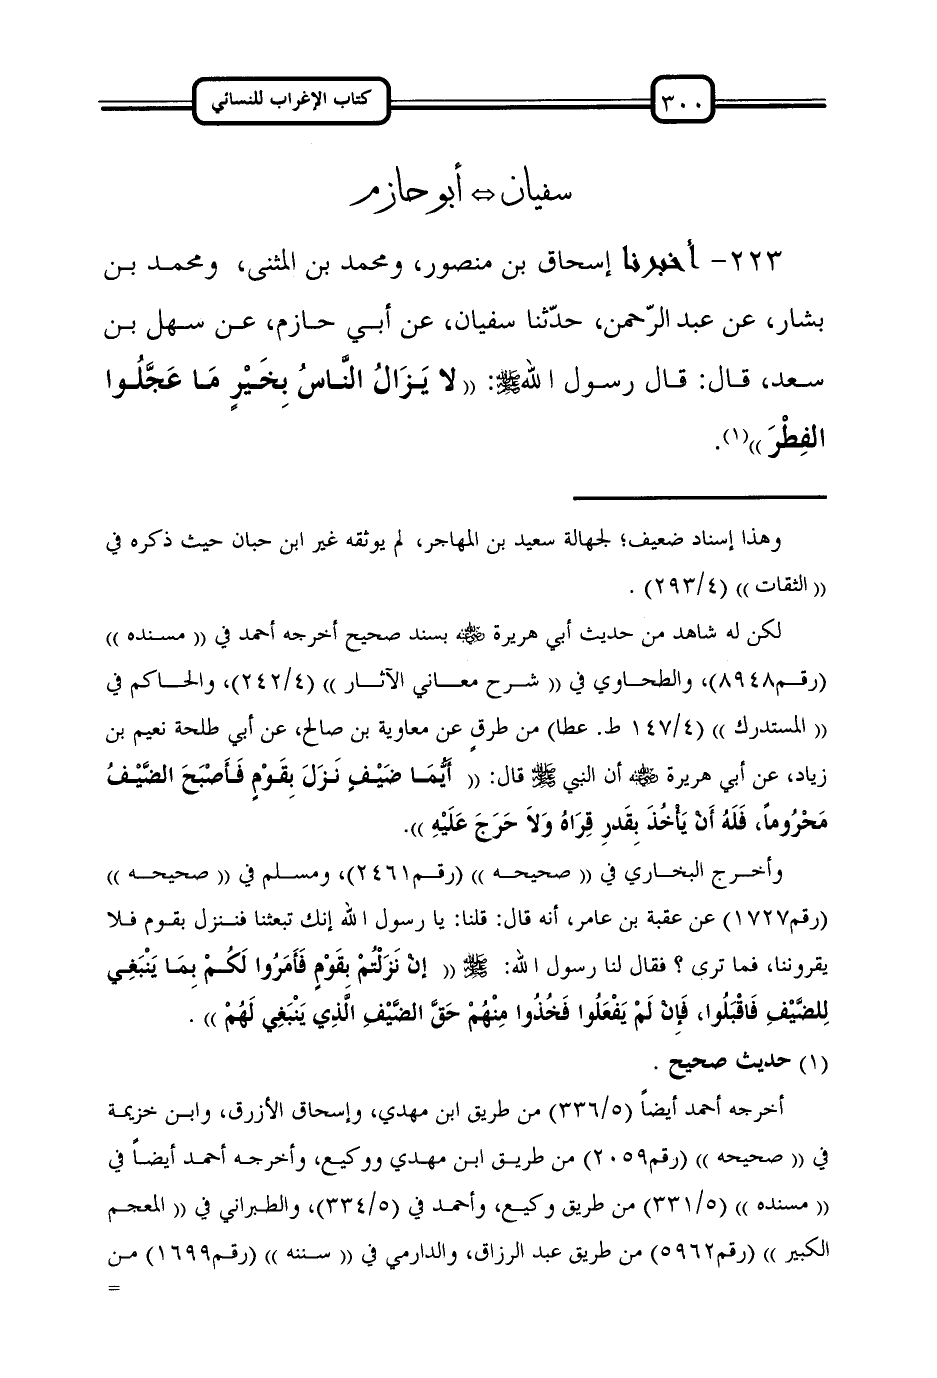 ٣٠٠ كتاب الإغراب للنسائي
سفيان ⇔ أبو حازم
٢٢٣- أخبرنا إسحاق بن منصور، ومحمد بن المثنى، ومحمد بن
بشار، عن عبد الرّحمن، حدّثنا سفيان، عن أبي حازم، عن سهل بن
سعد، قال: قال رسول الله ﷺ: (( لا يَزَالُ النَّاسُ بِخَيْرٍ مَا عَجَّلُوا
الفِطْرَ ))(١).
وهذا إسناد ضعيف؛ لجهالة سعيد بن المهاجر، لم يوثقه غير ابن حبان حيث ذكره في
(( الثقات )) (٢٩٣/٤) .
لكن له شاهد من حديث أبي هريرة ﵁ بسند صحيح أخرجه أحمد في (( مسنده ))
(رقم٨٩٤٨)، والطحاوي في (( شرح معاني الآثار )) (٢٤٢/٤)، والحاكم في
(( المستدرك )) (١٤٧/٤ ط. عطا) من طرقٍ عن معاوية بن صالح، عن أبي طلحة نعيم بن
زياد، عن أبي هريرة ﵁ أن النبي ﷺ قال: (( أَيُّمَا ضَيْفٍ نَزَلَ بِقَوْمٍ فَأَصْبَحَ الضَّيْفُ
مَحْرُوماً، فَلَهُ أَنْ يَأْخُذَ بِقَدرِ قِرَاهُ وَلاَ حَرَجَ عَلَيْهِ )).
وأخرج البخاري في (( صحيحه )) (رقم٢٤٦١)، ومسلم في (( صحيحه ))
(رقم١٧٢٧) عن عقبة بن عامر، أنه قال: قلنا: يا رسول الله إنك تبعثنا فننزل بقوم فلا
يقروننا، فما ترى ؟ فقال لنا رسول الله: ﷺ (( إنْ نَزَلْتُمْ بِقَوْمٍ فَأَمَرُوا لَكُمْ بِمَا يَنْبَغِي
لِلضَّيْفِ فَاقْبَلُوا، فَإِنْ لَمْ يَفْعَلُوا فَخُذُوا مِنْهُمْ حَقَّ الضَّيْفِ الَّذِي يَنْبَغِي لَهُمْ )) .
(١) حديث صحيح .
أخرجه أحمد أيضاً (٣٣٦/٥) من طريق ابن مهدي، وإسحاق الأزرق، وابن خزيمة
في (( صحيحه )) (رقم٢٠٥٩) من طريق ابن مهدي ووكيع، وأخرجه أحمد أيضاً في
(( مسنده )) (٣٣١/٥) من طريق وكيع، وأحمد في (٣٣٤/٥)، والطبراني في (( المعجم
الكبير )) (رقم٥٩٦٢) من طريق عبد الرزاق، والدارمي في (( سننه )) (رقم١٦٩٩) من
=